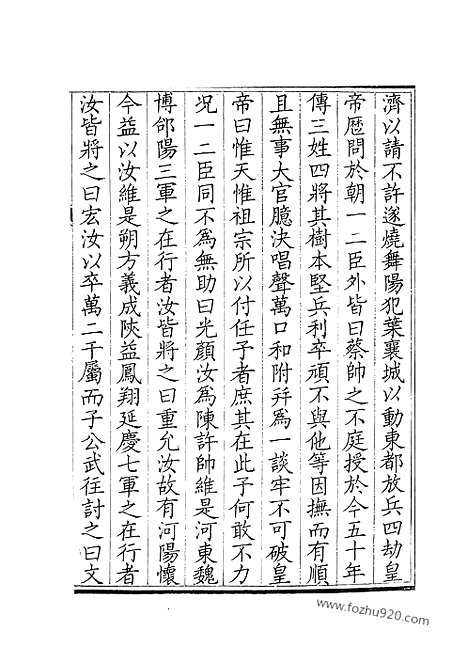 濟以請不許遂燒舞陽犯葉襄城以動東都放兵四劫皇
帝歷問於朝一二臣外皆曰蔡帥之不庭授於今五十年
傳三姓四將其樹本堅兵利卒頑不與他等因撫而有順
且無事大官臆決唱聲萬口和附并為一談牢不可破皇
帝曰惟天惟祖宗所以付任予者庶其在此予何敢不力
況一二臣同不為無助曰光顏汝為陳許帥維是河東魏
博郃陽三軍之在行者汝皆將之曰重允汝故有河陽懷
今益以汝維是朔方義成陝益鳳翔延慶七軍之在行者
汝皆將之曰宏汝以卒萬二千屬而子公武往討之曰文
www.fozhu920.com